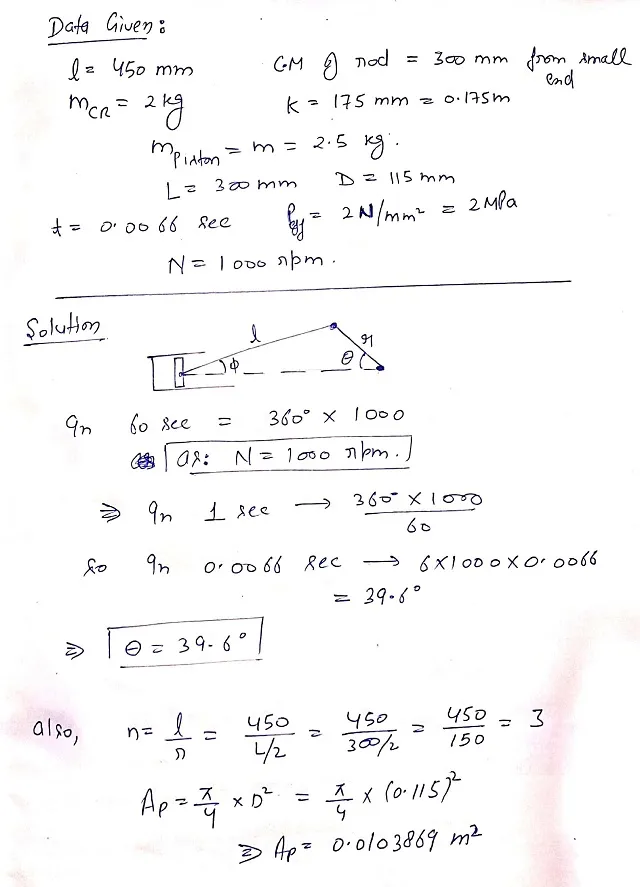 Data Given:
l = 450 mm GM of rod = 300 mm from small end
m_CR = 2 kg K = 175 mm = 0.175m
m_Piston = m = 2.5 kg.
L = 300 mm D = 115 mm
t = 0.0066 sec P_g = 2 N/mm² = 2 MPa
N = 1000 rpm.
Solution
l r
ϕ θ
In 60 sec = 360° × 1000
as: N = 1000 rpm.
⇒ In 1 sec → 360° × 1000 / 60
so In 0.0066 sec → 6×1000×0.0066
= 39.6°
⇒ θ = 39.6°
also, n = l/r = 450/(L/2) = 450/(300/2) = 450/150 = 3
Ap = π/4 × D² = π/4 × (0.115)²
⇒ Ap = 0.0103869 m²